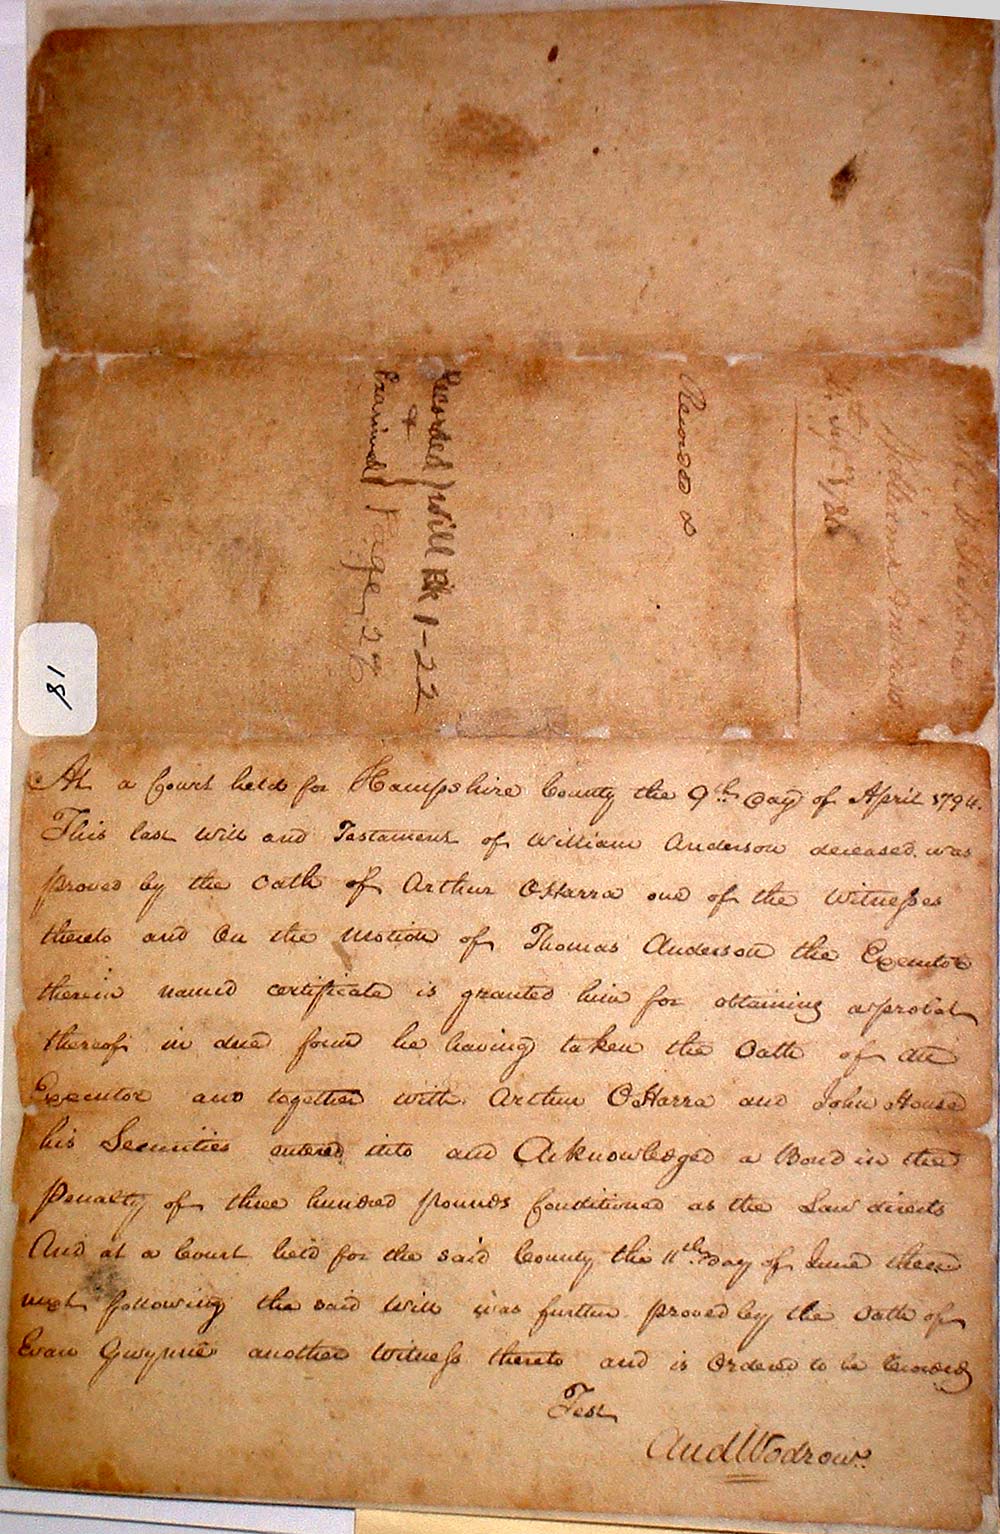 Recorded } Will Bk 1-22
&
Examined } Page 26
Recorded &
William
81
At a Court held for Hampshire County the 9th Day of April 1794.
This last Will and Testament of William Anderson deceased was
proved by the Oath of Arthur OHarra one of the Witnesses
thereto and On the Motion of Thomas Anderson the Executor
therein named certificate is granted him for obtaining a probat
thereof in due form he having taken the Oath of an
Executor and together with Arthur OHarra and John House
his Securities entered into and Acknowledged a Bond in the
Penalty of three hundred pounds Conditioned as the Law directs
And at a Court held for the said County the 11th Day of June then
next following the said Will was further proved by the Oath of
Evan Gwynne another Witness thereto and is Ordered to be Recorded
Test
And Wodrow